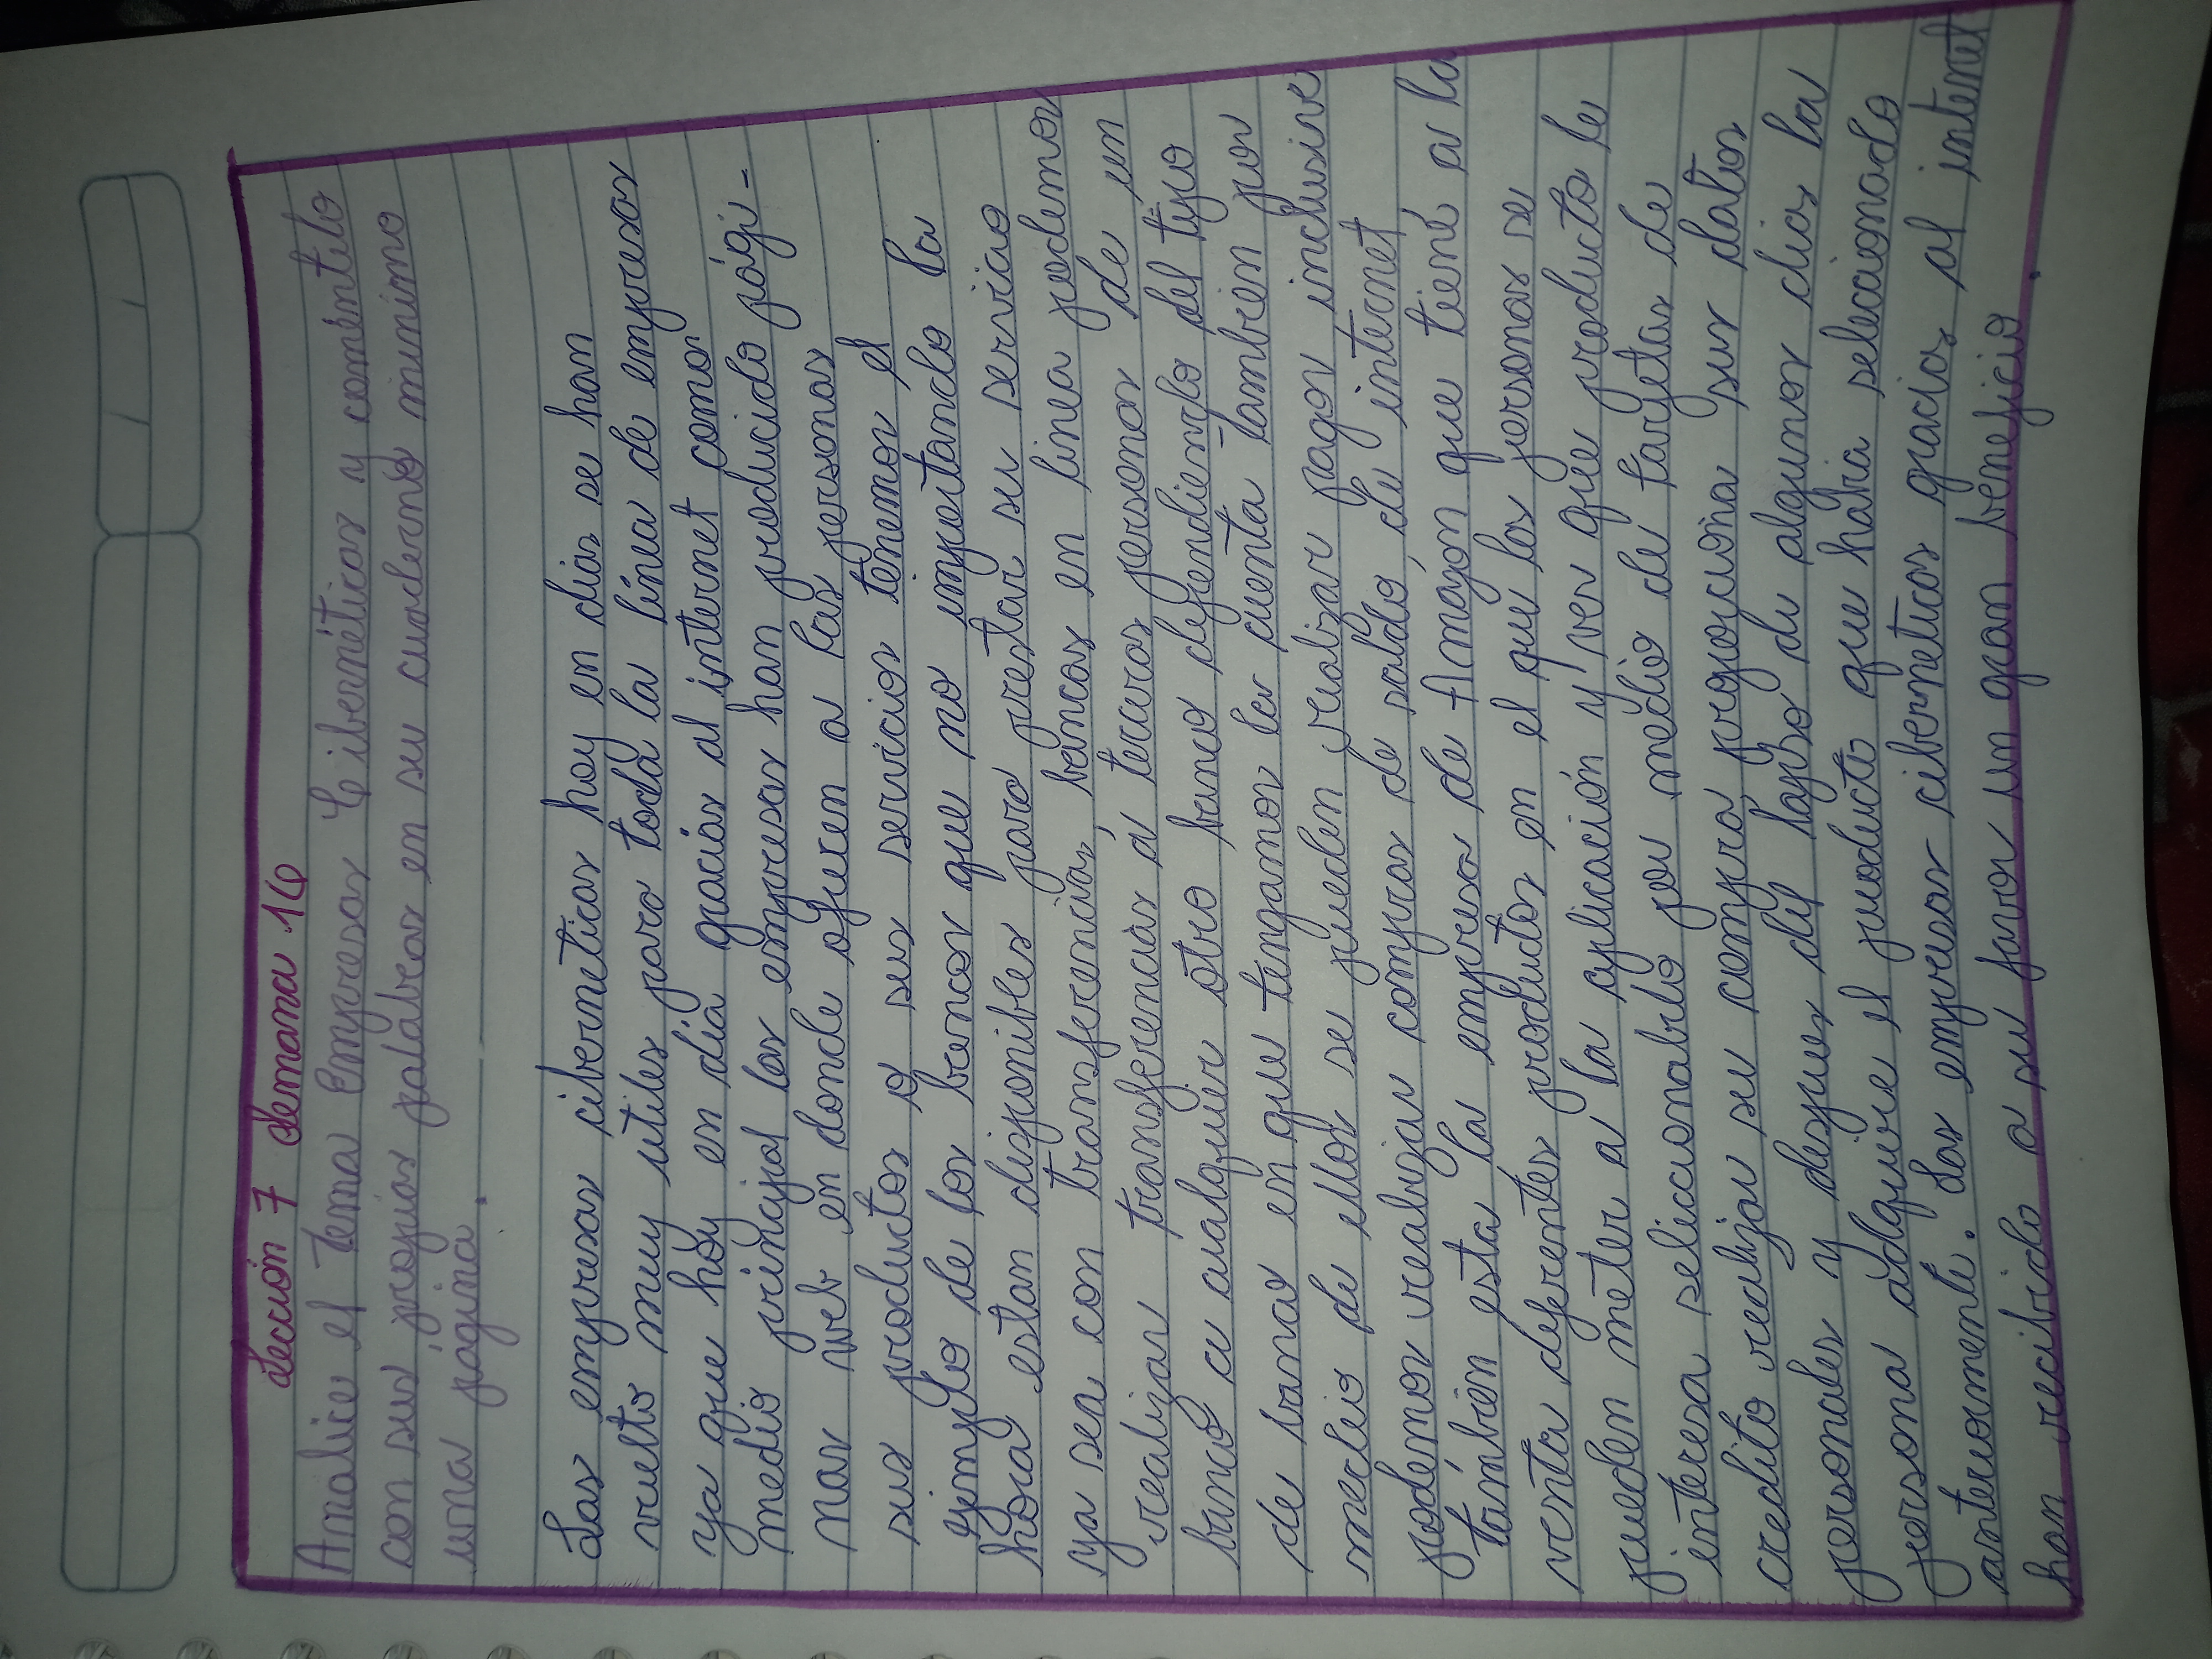 Lección 7 Semana 14
Analice el tema Empresas Cibernéticas y coméntelo
con sus propias palabras en su cuaderno mínimo
una página.
Las empresas ciberneticas hoy en dias se han
vuelto muy utiles para toda la línea de empresas
ya que hoy en dia gracias al internet como
medio principal las empresas han producido pági-
nas web en donde ofrecen a las personas
sus productos o sus servicios tenemos el
ejmplo de los bancos que no importando la
hora estan disponibles para prestar su servicio
ya sea con transferencias, bancas en linea podemos
realizar transferencias a terceras personas de un
banco a cualquier otro banco dependiendo del tipo
de banca en que tengamos la cuenta tambien por
medio de ellos se pueden realizar pagos inclusive
podemos realizar compras de saldo, de internet
también esta la empresa de Amazon que tiene a la
venta deferentes productos en el que las personas se
pueden meter a la aplicación y ver que producto le
interesa seliccionablo por medio de tarjetas de
credito realizar su compra proporciona sus datos
personales y despues del lapso de algunos dias la
persona adquire el producto que habia seleccionado
anteriormente. Las empresas ciberneticas gracias al intenet
han recibido a su favor un gran beneficio.